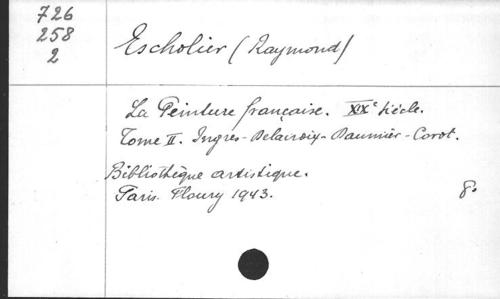 726
258
2
Escholier (Raymond)
La Peinture française. XIXe siècle.
Tome II. Ingres - Delacroix - Daumier - Corot.
Bibliothèque artistique.
Paris. Floury 1943.
8o